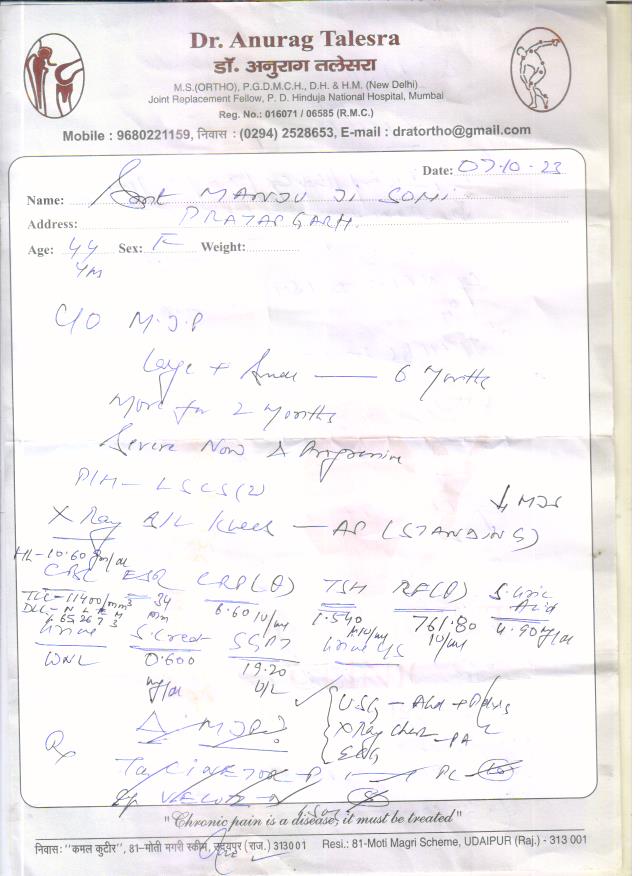 Dr. Anurag Talesra
डॉ. अनुराग तलेसरा
M.S.(ORTHO), P.G.D.M.C.H., D.H. & H.M. (New Delhi)
Joint Replacement Fellow, P. D. Hinduja National Hospital, Mumbai
Reg. No.: 016071 / 06585 (R.M.C.)
Mobile : 9680221159, निवास : (0294) 2528653, E-mail : dratortho@gmail.com
Date: 07.10.23
Name: Smt MANJU JI SONI
Address: PRATAPGARH
Age: 44 Sex: F Weight:
C/O M.J.P
Large + Small 6 Months
More for 2 Months
Severe Now & Progressive
P/H - LSCS (2)
X Ray B/L Knees - AP (STANDING)
10.60 gm/dl
CBC ESR CRP(Q) TSH RF(Q) S. Uric Acid
TLC - 11400/mm3 34 mm 6.60 1.540 761.80 4.90 mg/dl
Urine S. Creat SGPT Urine
WNL 0.600 mg/dl 19.20 U/L
USG - Abd + Pelvis
X Ray Chest - PA
Δ: MJP?
Rx
"Chronic pain is a disease, it must be treated"
निवास: "कमल कुटीर", 81-मोती मगरी स्कीम, उदयपुर (राज.) 313001 Resi.: 81-Moti Magri Scheme, UDAIPUR (Raj.) - 313 001